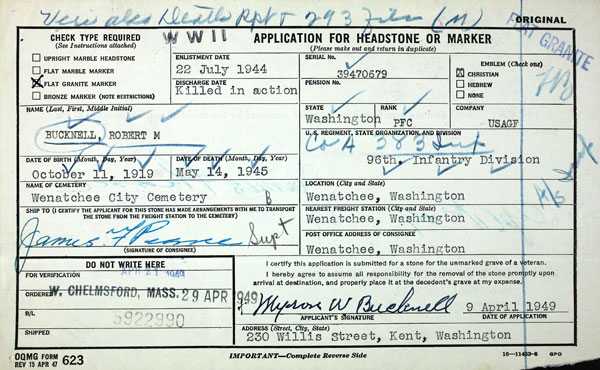 ORIGINAL
FLAT GRANITE
CHECK TYPE REQUIRED
(See Instructions attached)
WWII
APPLICATION FOR HEADSTONE OR MARKER
(Please make out and return in duplicate)
UPRIGHT MARBLE HEADSTONE
FLAT MARBLE MARKER
FLAT GRANITE MARKER
BRONZE MARKER (NOTE RESTRICTIONS)
ENLISTMENT DATE
22 July 1944
DISCHARGE DATE
Killed in action
SERIAL No.
39470679
PENSION No.
EMBLEM (Check one)
CHRISTIAN
HEBREW
NONE
NAME (Last, First, Middle Initial)
BUCKNELL, ROBERT M
STATE
Washington
RANK
PFC
COMPANY
USAGF
DATE OF BIRTH (Month, Day, Year)
October 11, 1919
DATE OF DEATH (Month, Day, Year)
May 14, 1945
U. S. REGIMENT, STATE ORGANIZATION, AND DIVISION
Co A 383 Inf
96th. Infantry Division
NAME OF CEMETERY
Wenatchee City Cemetery
LOCATION (City and State)
Wenatchee, Washington
SHIP TO (I CERTIFY THE APPLICANT FOR THIS STONE HAS MADE ARRANGEMENTS WITH ME TO TRANSPORT
THE STONE FROM THE STATION TO THE CEMETERY)
James F Pearce Supt
(SIGNATURE OF CONSIGNEE)
NEAREST FREIGHT STATION (City and State)
Wenatchee, Washington
POST OFFICE ADDRESS OF CONSIGNEE
Wenatchee, Washington
DO NOT WRITE HERE
FOR VERIFICATION
ORDERED
W. CHELMSFORD, MASS. 29 APR 1949
B/L
5922990
SHIPPED
I certify this application is submitted for a stone for the unmarked grave of a veteran.
I hereby agree to assume all responsibility for the removal of the stone promptly
upon arrival at destination, and properly place it at the decedent's grave at my expense.
Myron W Bucknell
9 April 1949
APPLICANT'S SIGNATURE
DATE OF APPLICATION
ADDRESS (Street, City, State)
230 Willis Street, Kent, Washington
OQMG FORM
REV 15 APR 47
623
IMPORTANT—Complete Reverse Side
16—11453-6 GPO